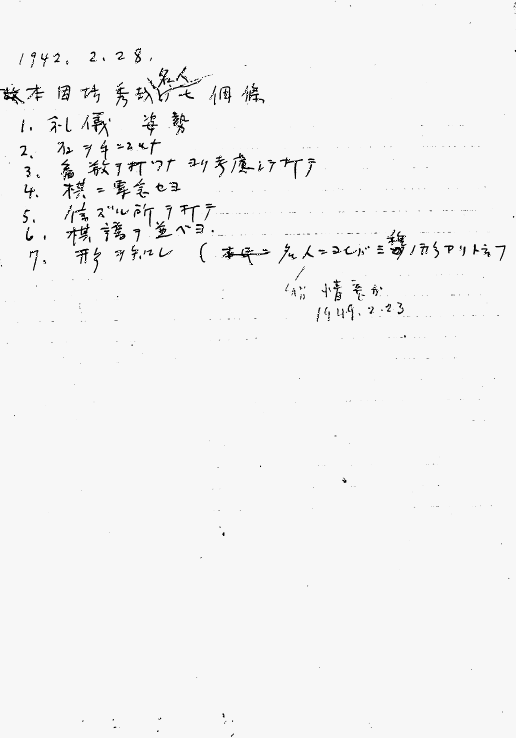 1942. 2. 28.
故本因坊秀哉名人ノ七個條
1. 礼儀 姿勢
2. 石ヲ手ニスルナ
3. 番数ヲ打ツナ ヨリ考慮シテ打テ
4. 棋ニ専念セヨ
5. 信ズル所ヲ打テ
6. 棋譜ヲ並ベヨ.
7. 形ヲ知レ ( 名人ニヨレバ三 ノ形アリト云フ
情意か
1949.2.23